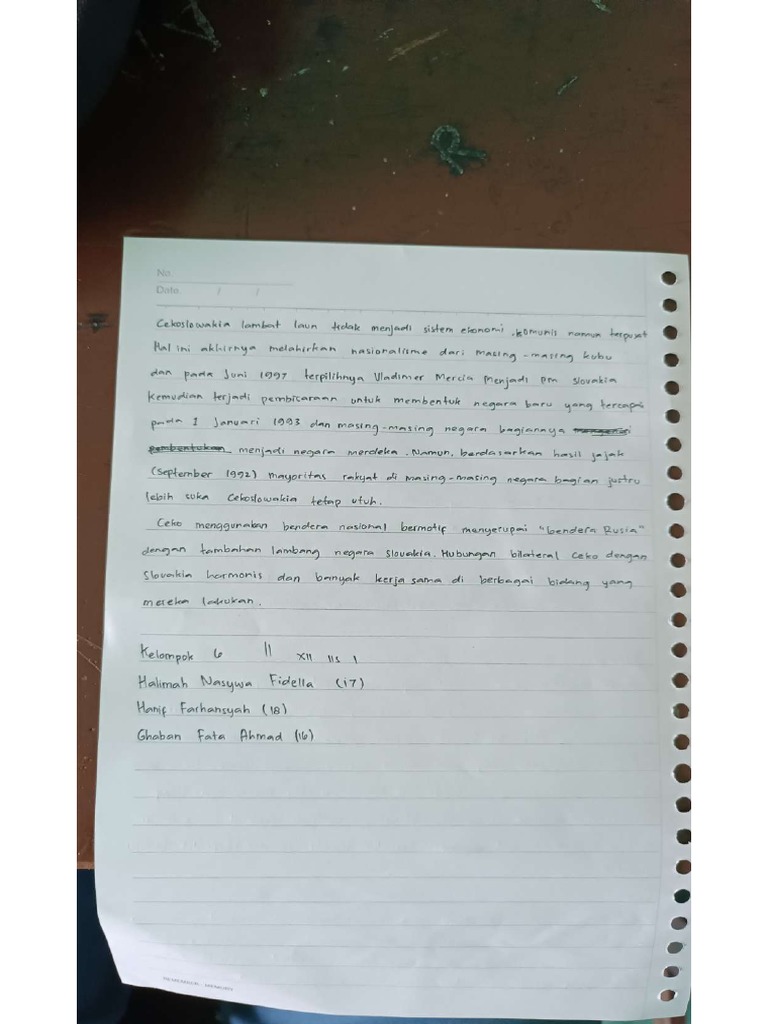 No.
Date. / /
Cekoslowakia lambat laun tidak menjadi sistem ekonomi komunis namun terpusat
Hal ini akhirnya melahirkan nasionalisme dari masing-masing kubu
dan pada Juni 1997 terpilihnya Vladimer Mercia menjadi pm slovakia
kemudian terjadi pembicaraan untuk membentuk negara baru yang tercapai
pada 1 Januari 1993 dan masing-masing negara bagiannya
pembentukan menjadi negara merdeka. Namun, berdasarkan hasil jajak
(September 1992) mayoritas rakyat di masing-masing negara bagian justru
lebih suka Cekoslowakia tetap utuh.
Ceko menggunakan bendera nasional bermotif menyerupai "bendera Rusia"
dengan tambahan lambang negara slovakia. Hubungan bilateral Ceko dengan
Slovakia harmonis dan banyak kerja sama di berbagai bidang yang
mereka lakukan.
Kelompok 6 || XII IIS 1
Halimah Nasywa Fidella (17)
Hanif Farhansyah (18)
Ghaban Fata Ahmad (16)